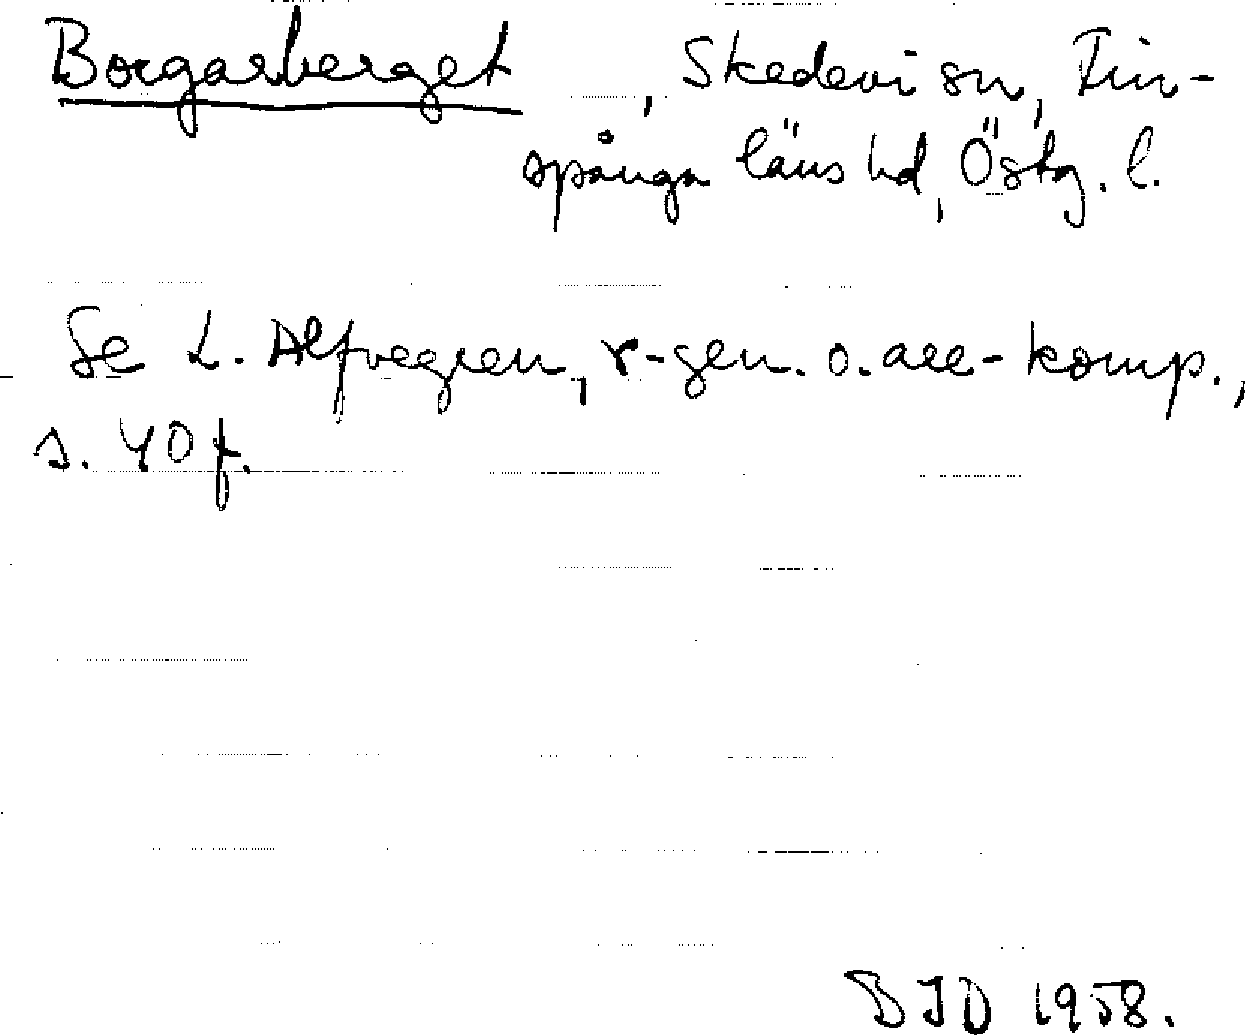 Borgarberget, Skedevi sn, Fin-
spånga läns hd, Östg. l.
Se L. Alfvegren, r-gen. o. are-komp.,
s. 40 f.
BJD 1958.